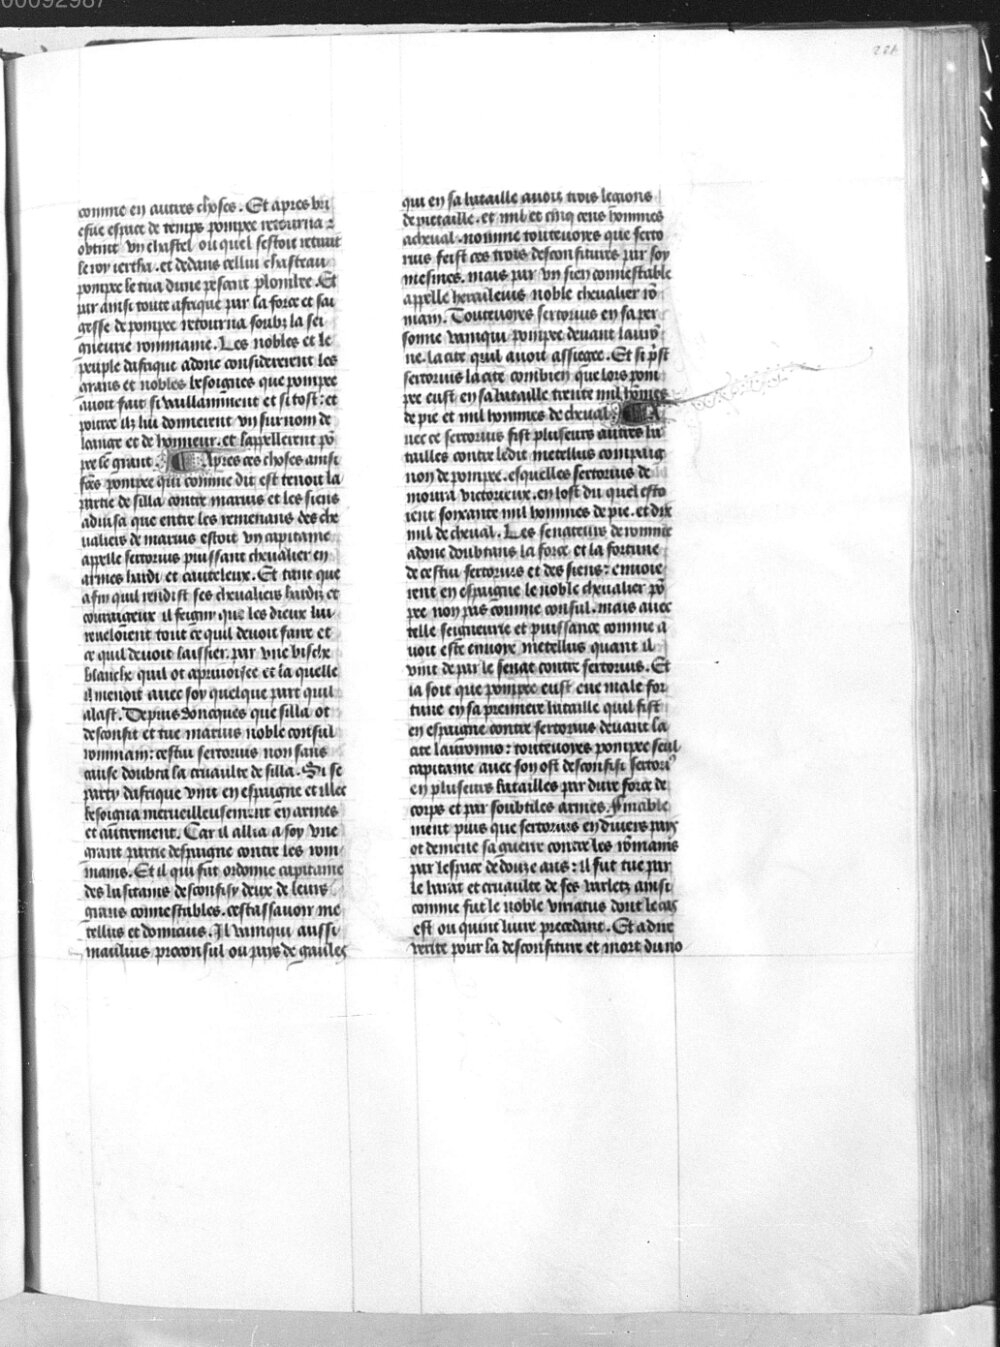 00092987
221
comme en autres choses. Et apres bri
efue espace de temps pompee retourna z
obtint vn chastel ou quel sestoit retrait
le roy iertha. et dedans cellui chasteau
pompee le tua dune pesant plombee. Et
par ainsi toute afrique par la force et sai
gesse de pompee retourna soubz la sei
gneurie rommaine. Les nobles et le
peuple dafrique adonc considererent les
grans et nobles besoignes que pompee
auoit fait si vaillamment et si tost: et
pource ilz lui donnerent vn surnom de
loange et de honneur. et lappellerent pō
pee le grant. Apres ces choses ainsi
fcēs pompee qui comme dit est tenoit la
partie de silla contre marius et les siens
aduisa que entre les remenans des che
ualiers de marius estoit vn capitaine
appelle sertorius puissant cheualier en
armes hardi et cauteleux. Et tant que
afin quil rendist ses cheualiers hardiz et
courrageux il feigny que les dieux lui
reueloient tout ce quil deuoit faire et
ce quil deuoit laissier. par vne bische
blanche quil ot apriuoisee et la quelle
il menoit auec soy quelque part quil
alast. Depuis doncques que silla ot
desconfit et tue marius noble consul
rommain: cestui sertorius non sans
cause doubta la cruaulte de silla. Si se
party dafrique vint en espaigne et illec
besoigna merueilleusement en armes
et autrement. Car il allia a soy vne
grant partie despaigne contre les rom
mains. Et il qui fut ordonne capitaine
des lusitains desconfisy deux de leurs
grans connestables. cestassauoir me
tellus et domicius. Il vainqui aussi
maulius proconsul ou pays de gaules
qui en sa bataille auoit trois legions
de pietaille. et mil et cinq cens hommes
acheual. nomme touteuoyes que serto
rius feist ces trois desconfitures par soy
mesmes. mais par vn sien connestable
appelle herculeius noble cheualier rō
main. Touteuoyes sertorius en sa per
sonne vainqui pompee deuant lauro
ne. la cite quil auoit assiegee. Et si pst
sertorius la cite combien que lors pom
pee eust en sa bataille trente mil hommes
de pie et mil hommes de cheual. A
uec ce sertorius fist pluseurs autres ba
tailles contre ledit metellus compaig
non de pompee. esquelles sertorius de
moura victorieux. en lost du quel esto
ient soixante mil hommes de pie. et dix
mil de cheual. Les senateurs de romme
adonc doubtans la force et la fortune
de cestui sertorius et des siens: enuoie
rent en espaigne le noble cheualier pō
pee non pas comme consul. mais auec
telle seigneurie et puissance comme a
uoit este enuoye metellus quant il
vint de par le senat contre sertorius. Et
ia soit que pompee eust eue male for
tune en sa premiere bataille quil fist
en espaigne contre sertorius deuant la
cite lauronno: touteuoyes pompee seul
capitaine auec son ost desconfist sertori9
en pluseurs batailles par dure force de
corps et par soubtiles armes. Finable
ment puis que sertorius en diuers pays
ot demene sa guerre contre les rōmains
par lespace de douze ans: il fut tue par
le barat et cruaulte de ses varletz ainsi
comme fut le noble viriatus dont le cas
est ou quint liure precedant. Et a dire
verite pour la desconfiture et mort du no